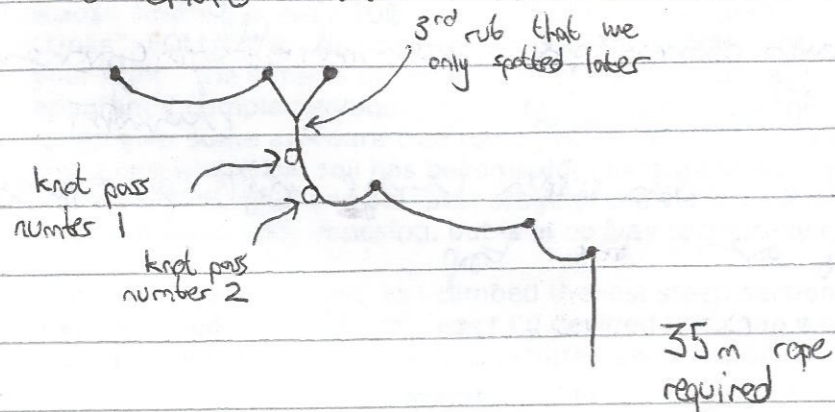 3rd rub that we
only spotted later
knot pass
number 1
knot pass
number 2
35m rope
required